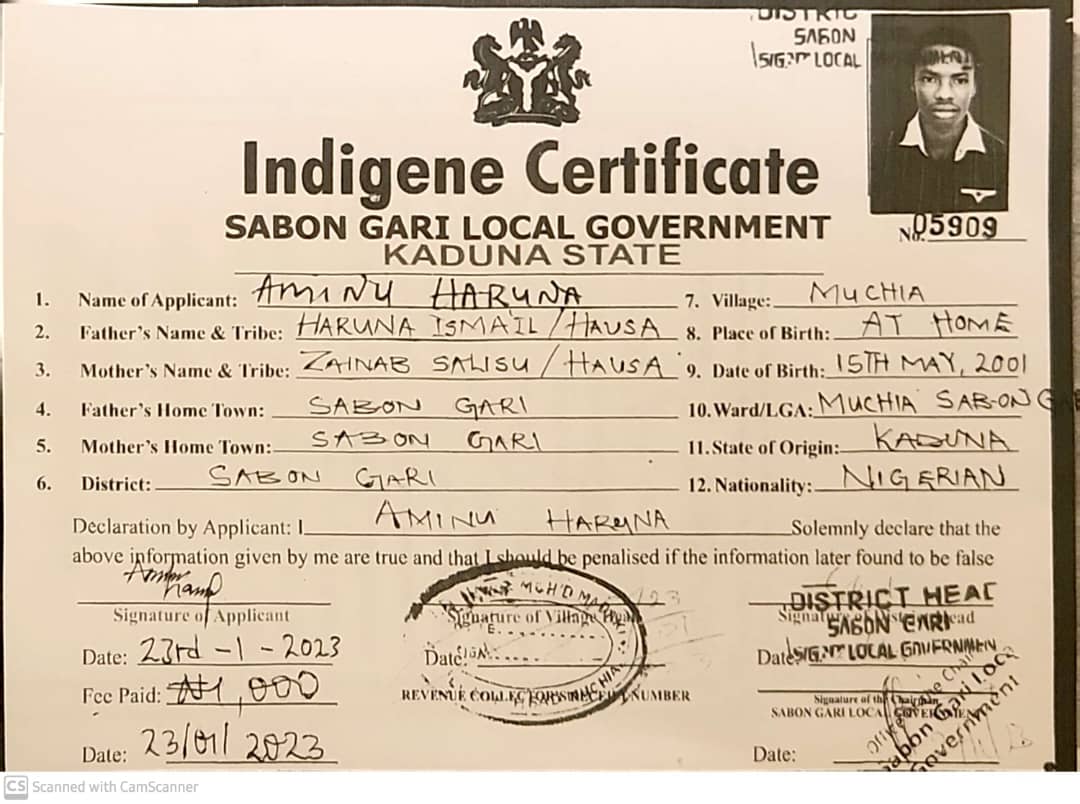 DISTRIC
SABON
SIG. LOCAL
Indigene Certificate
SABON GARI LOCAL GOVERNMENT
KADUNA STATE
No. 05909
1. Name of Applicant: AMINU HARUNA
7. Village: MUCHIA
2. Father's Name & Tribe: HARUNA ISMAIL / HAUSA
8. Place of Birth: AT HOME
3. Mother's Name & Tribe: ZAINAB SALISU / HAUSA
9. Date of Birth: 15TH MAY, 2001
4. Father's Home Town: SABON GARI
10. Ward/LGA: MUCHIA SABON GA
5. Mother's Home Town: SABON GARI
11. State of Origin: KADUNA
6. District: SABON GARI
12. Nationality: NIGERIAN
Declaration by Applicant: I AMINU HARUNA Solemnly declare that the
above information given by me are true and that I should be penalised if the information later found to be false
Signature of Applicant
Signature of Village Head
DISTRICT HEAD
SABON GARI
LOCAL GOVERNMEN
Date: 23rd - 1 - 2023
Date:
SIGN.
Date:
Fee Paid: ₦1,000
REVENUE COLLECTOR'S RECEIPT NUMBER
Signature of the Chairman
SABON GARI LOCAL GOVERNMENT
Office of the Chairman
Sabon Gari Local
Government
Date: 23/01/2023
Date:
CS Scanned with CamScanner